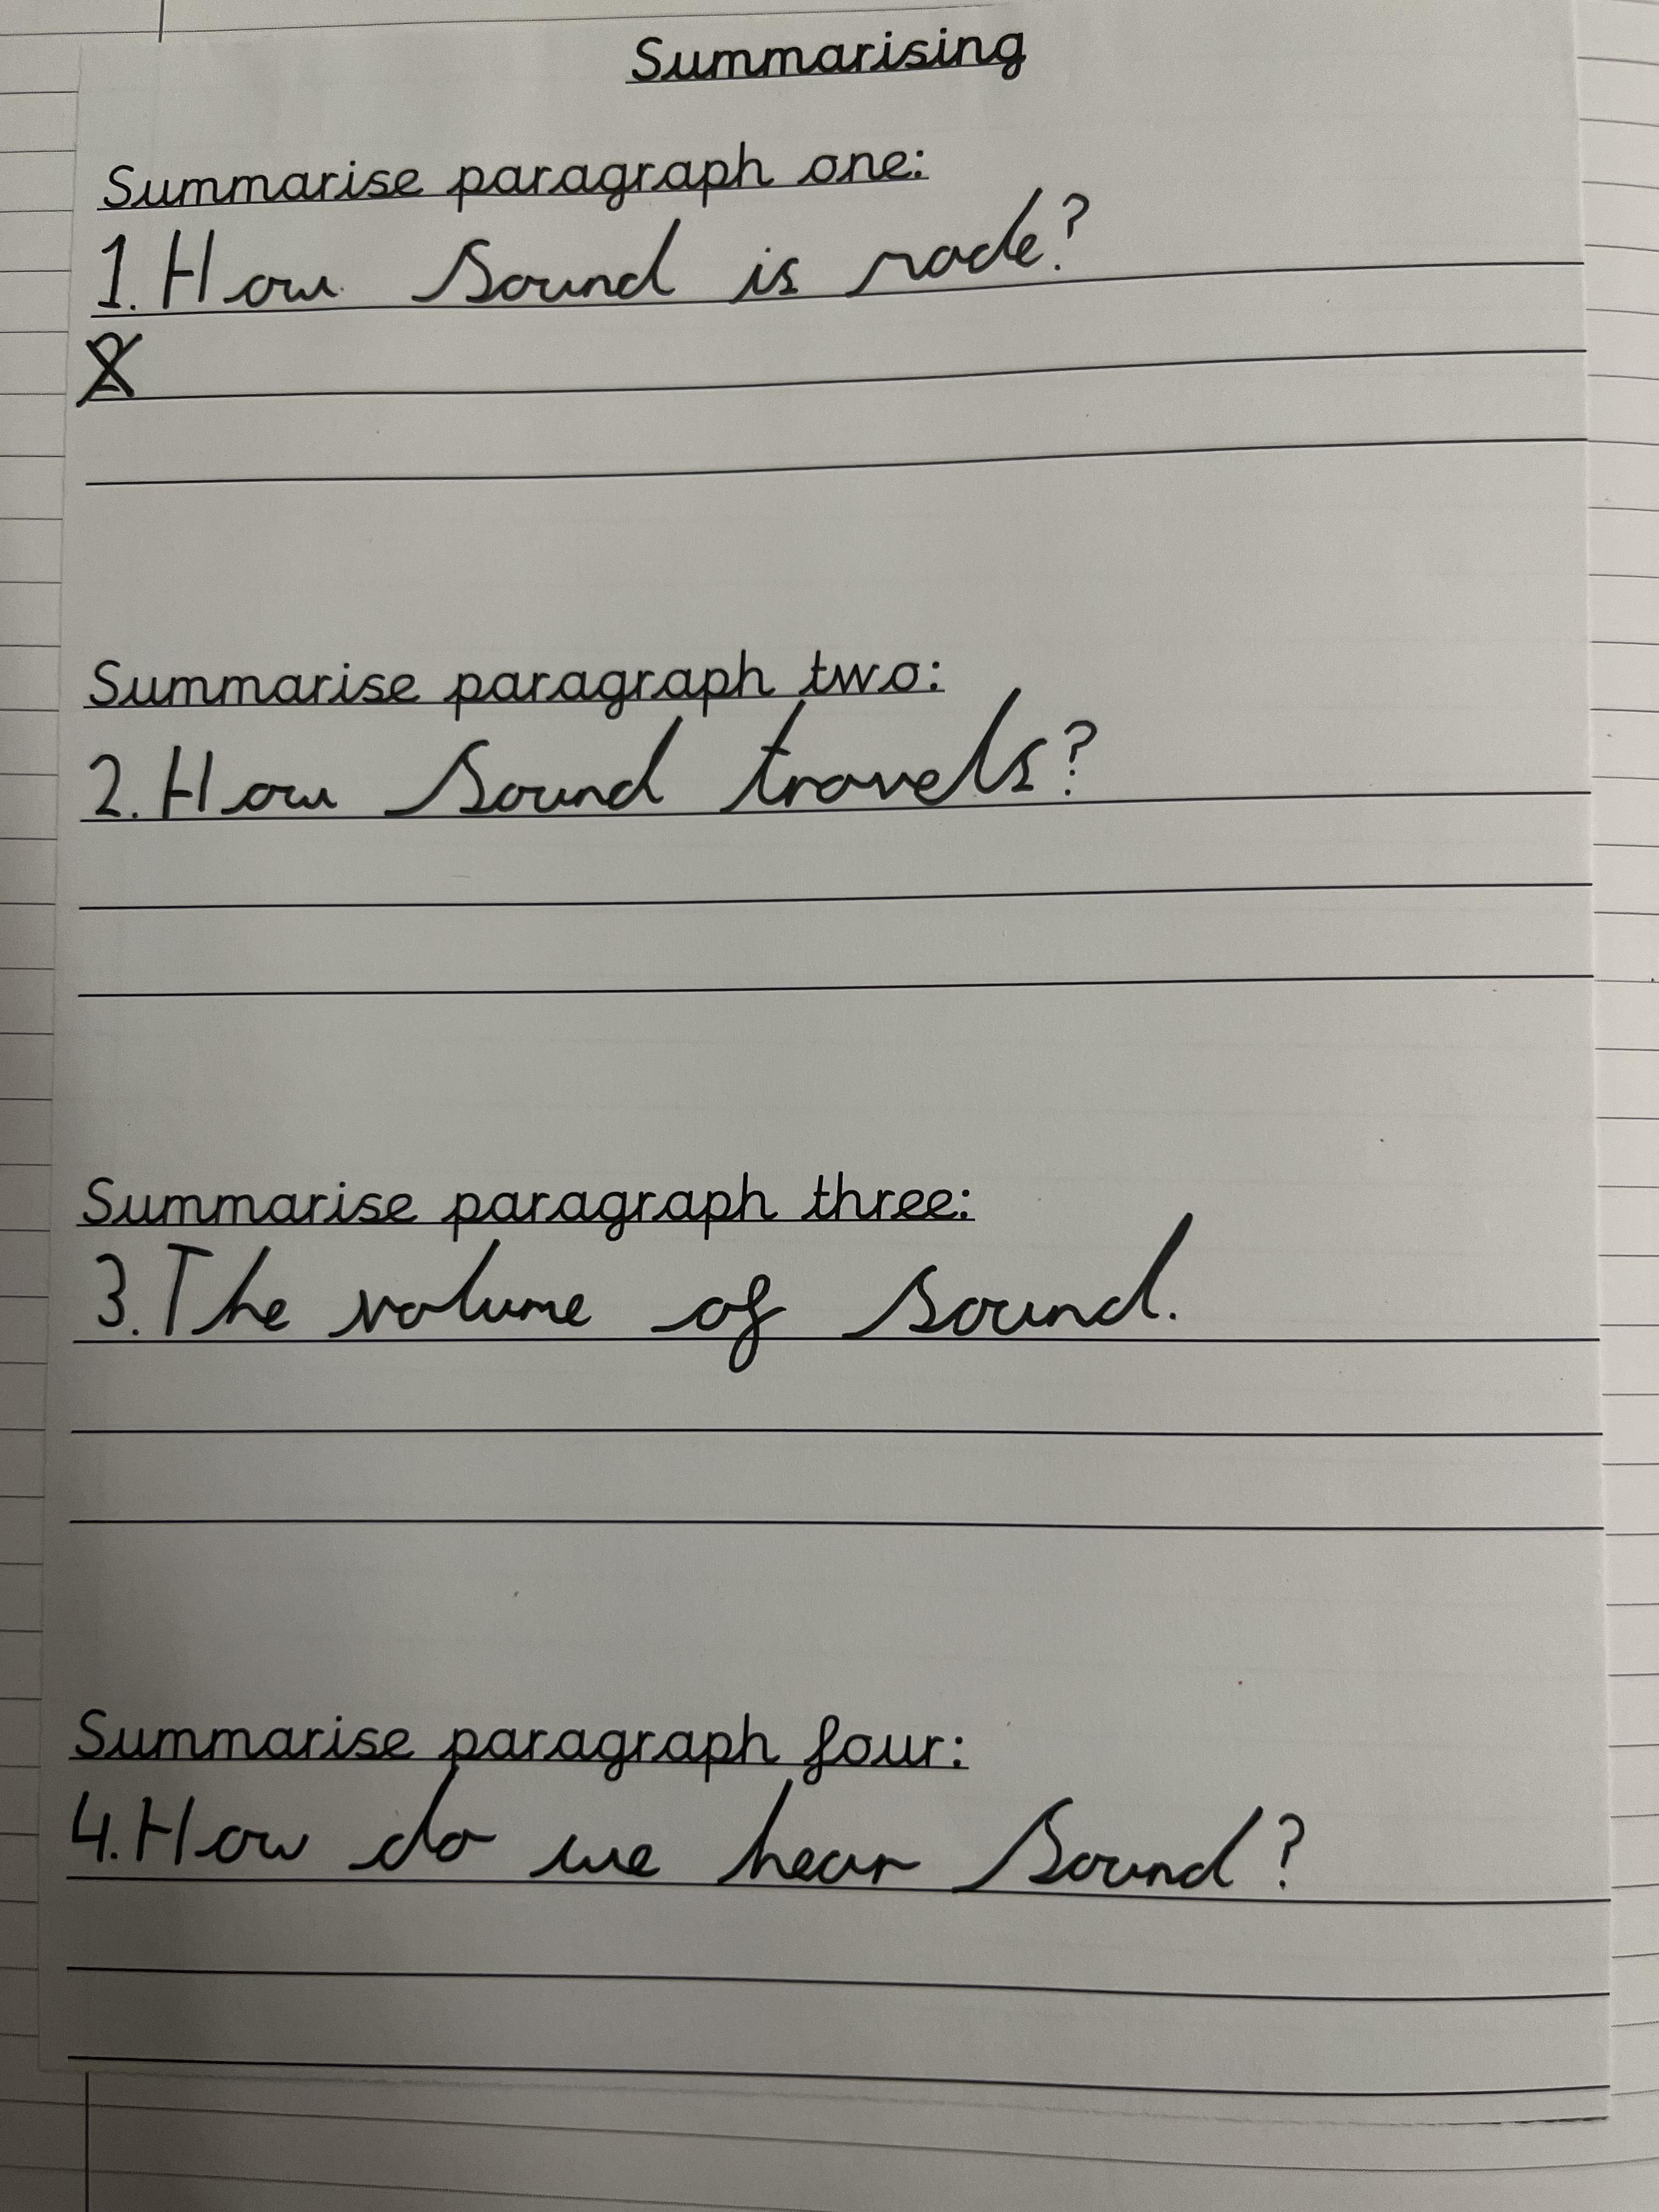 Summarising
Summarise paragraph one:
1. How sound is made?
Summarise paragraph two:
2. How sound travels?
Summarise paragraph three:
3. The volume of sound.
Summarise paragraph four:
4. How do we hear sound?